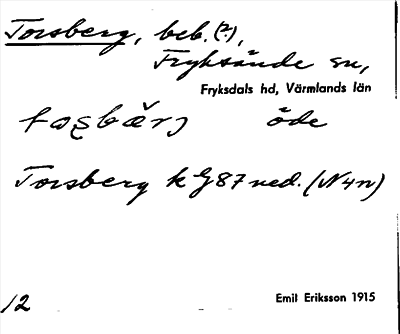 Torsberg, beb. (?),
Fryksände sn,
Fryksdals hd, Värmlands län
öde
Torsberg k G 87 ned. (N4n)
12 Emil Eriksson 1915